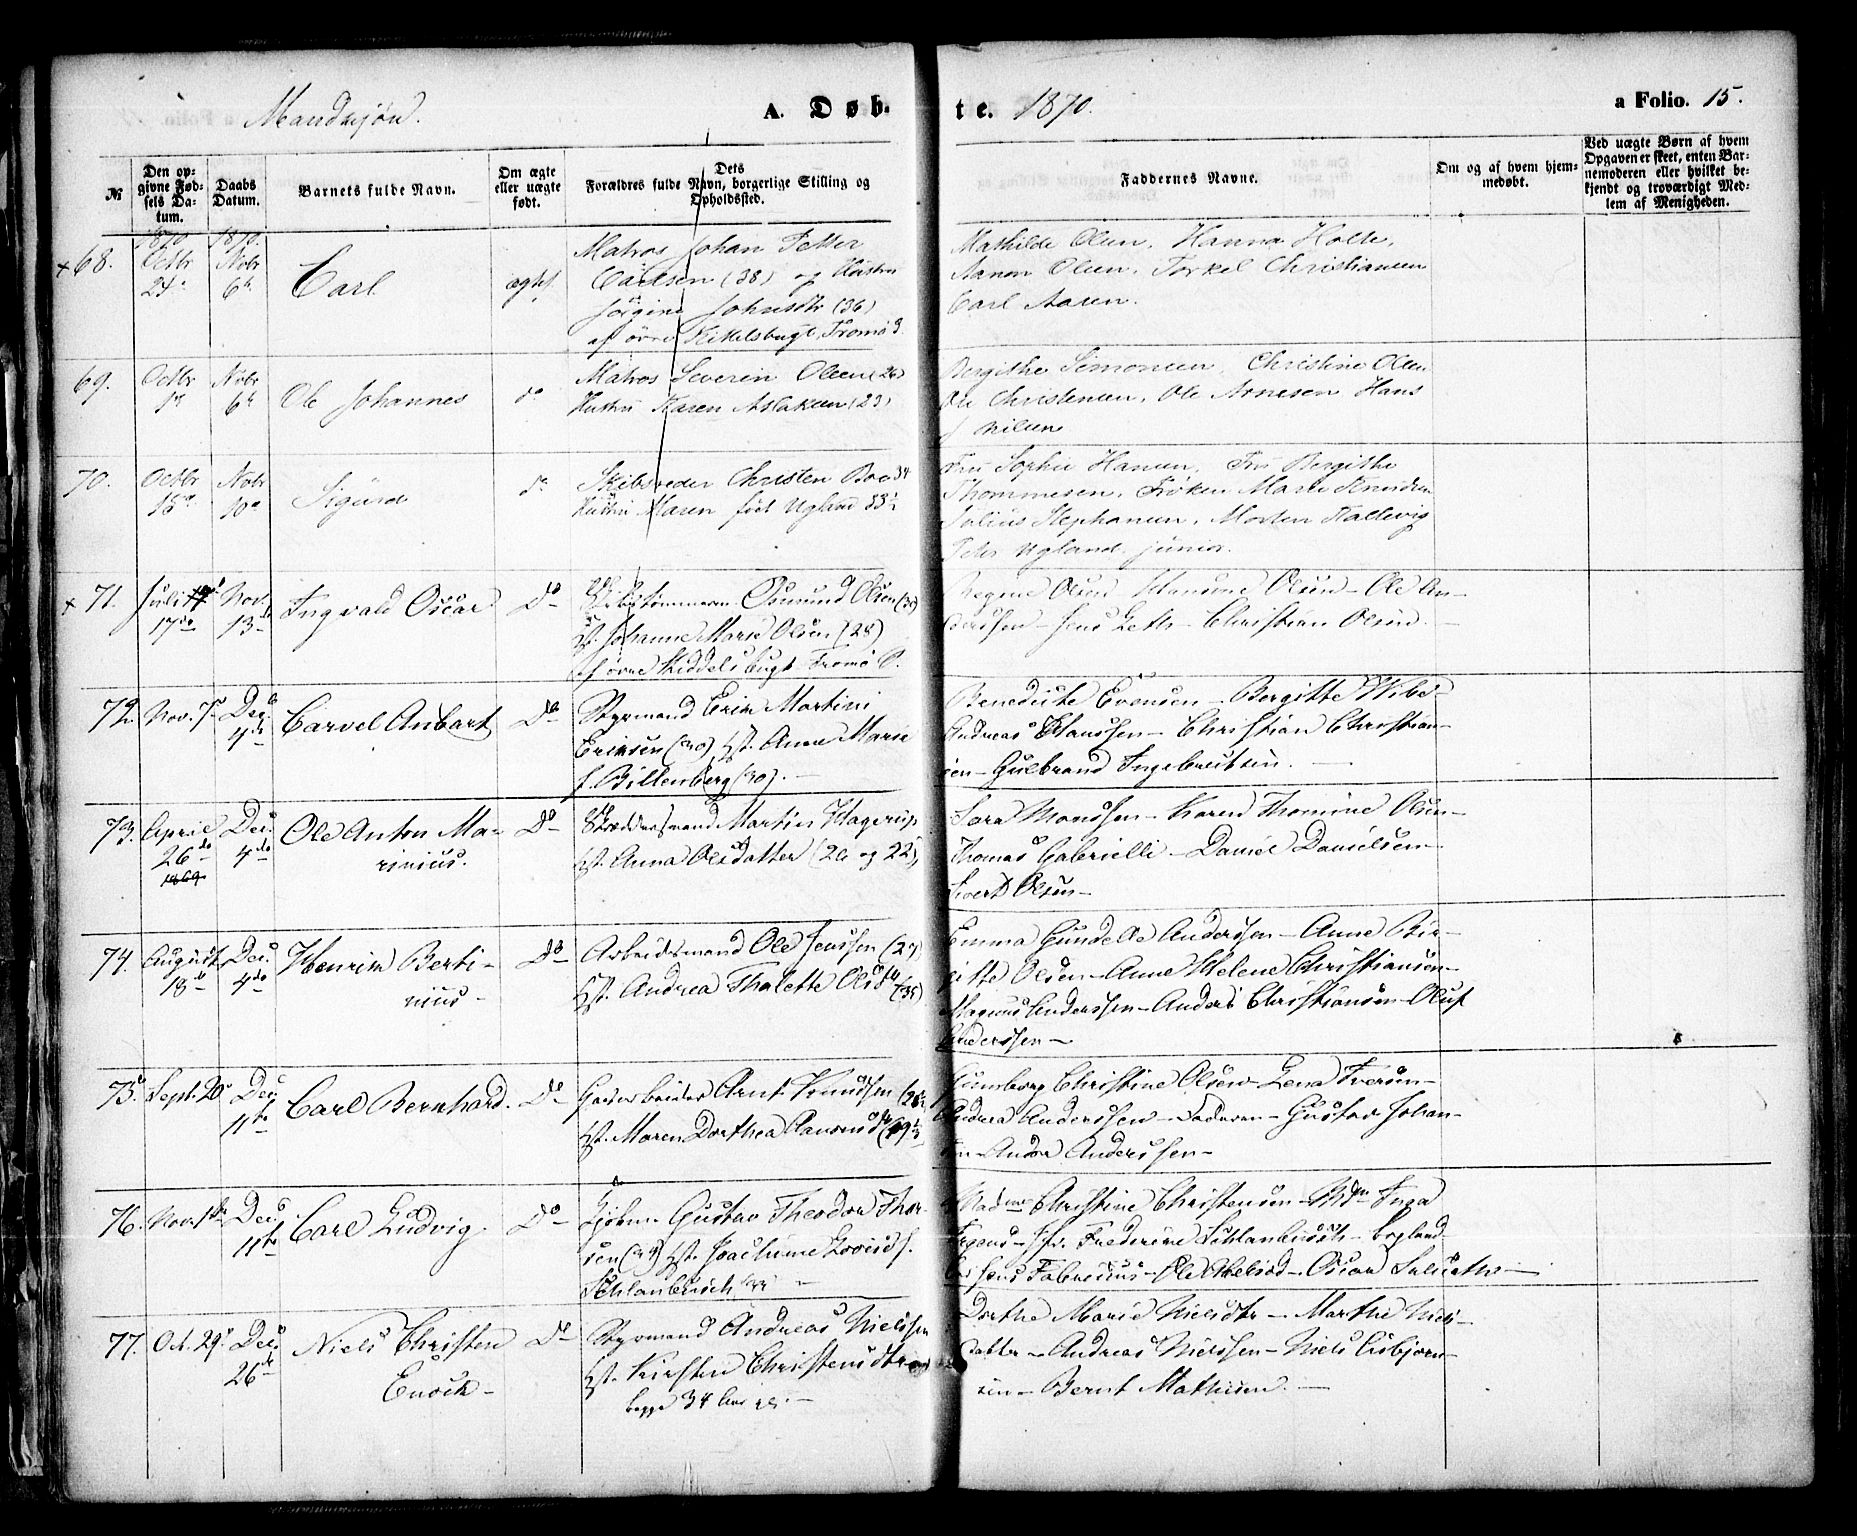 Mandkjøn. A. Døbte. 1870. a Folio. 15.
№
Den opgivne Fødsels Datum.
Daabs Datum.
Barnets fulde Navn.
Om ægte eller uægte født.
Dets Forældres fulde Navn, borgerlige Stilling og Opholdssted.
Faddernes Navne.
Om og af hvem hjemmedøbt.
Ved uægte Børn af hvem Opgaven er skeet, enten Barnemoderen eller hvilket bekjendt og troværdigt Medlem af Menigheden.
1870 1870.
68. Octbr Nobr 6 Carl
Matros Johan Petter
Carlsen (38) og Hustru
Jørgine Johnsdtr (36)
af øvre Kittelsbugt, Tromø S.
Mathilde Olsen, Hanna Holte,
Aanon Olsen, Torkel Christiansen
Carl Aasen.
69. Octbr Nobr 6 Ole Johannes do
Matros Severin Olsen (26)
Hustru Karen Aslaksen (23)
Bergithe Simonsen, Christine Olsen
Christensen, Ole Arnesen Hans
Nilsen
70. Octbr 15 Nobr 10 Sigurd do
Skibsreder Christen Boe 34
Hustru Maren født Ugland 33½
Fru Sophie Hansen, Fru Bergithe
Thommesen, Frøken Marie Knudsen
Julius Stephansen, Morten Kallevig
Peter Ugland junior.
71. Juli 17de Nov. 13de Ingvald Oscar Do
Osmund Olsen (30)
Hst. Johanne Marie Olsen (28)
af øvre Kiddelsbugt Tromø S.
Regine Olsen - Hansine Olsen - Ole An-
dersen - Jens Leth - Christian Olsen.
72. Nov. 7 Dec. 4de Carvel Anbart Do
Styrmand Erik Martini
Eriksen (30) Hst. Anne Marie
f. Billenberg (30).
Benedicte Evensen - Bergitte Wibe -
Andreas Clausen - Christian Christian-
sen - Gulbrand Ingebretsen.
73. April 26de 1869 Dec. 4de Ole Anton Ma-
rinius. Do
Martin Hagerup
Hst. Anna Olsdatter (26 og 22)
Sara Monssen - Karen Thomine Olsen -
Thomas Gabrielli - Daniel Danielsen -
Sivert Olsen -
74. August 18 Dec. 4de Henrik Berti-
nius - Do
Arbeidsmand Ole Jenssen (27)
Hst. Andrea Thalette Olsdtr (35)
Emma Gundelle Anderssen - Anne Bir-
gitte Olsen - Anne Helene Christiansen -
Magnus Anderssen - Anders Christiansen - Oluf
Anderssen -
75. Sept. 20 Dec. 11te Carl Bernhard. Do
Arnt Knudssen
Hst. Maren Dorthea
Gunborg Christine Olsen - Lena Iversen -
Andrea Anderssen - Faderen - Gustav Johan-
sen - Andor Anderssen -
76. Nov. 1ste Dec. 11te Carl Ludvig Do
Kjøbm. Gustav Theodor Thor-
sen Hst. Joachime Lovise f.
Schlanbusch
Christine Christensen - Mdm Inga
Frederikke Schlanbusch -
Jens Fabricius - Oscar
77. Oct. 29 Dec. 26de Niels Christen
Enock - Do
Styrmand Andreas Nielssen
Hst. Kirsten Christensdtr
begge 34 Aar
Dorthe Marie Nielsdtr - Marthe Niels-
datter - Andreas Nielssen - Niels Esbjørn-
sen - Bernt Mathisen. -